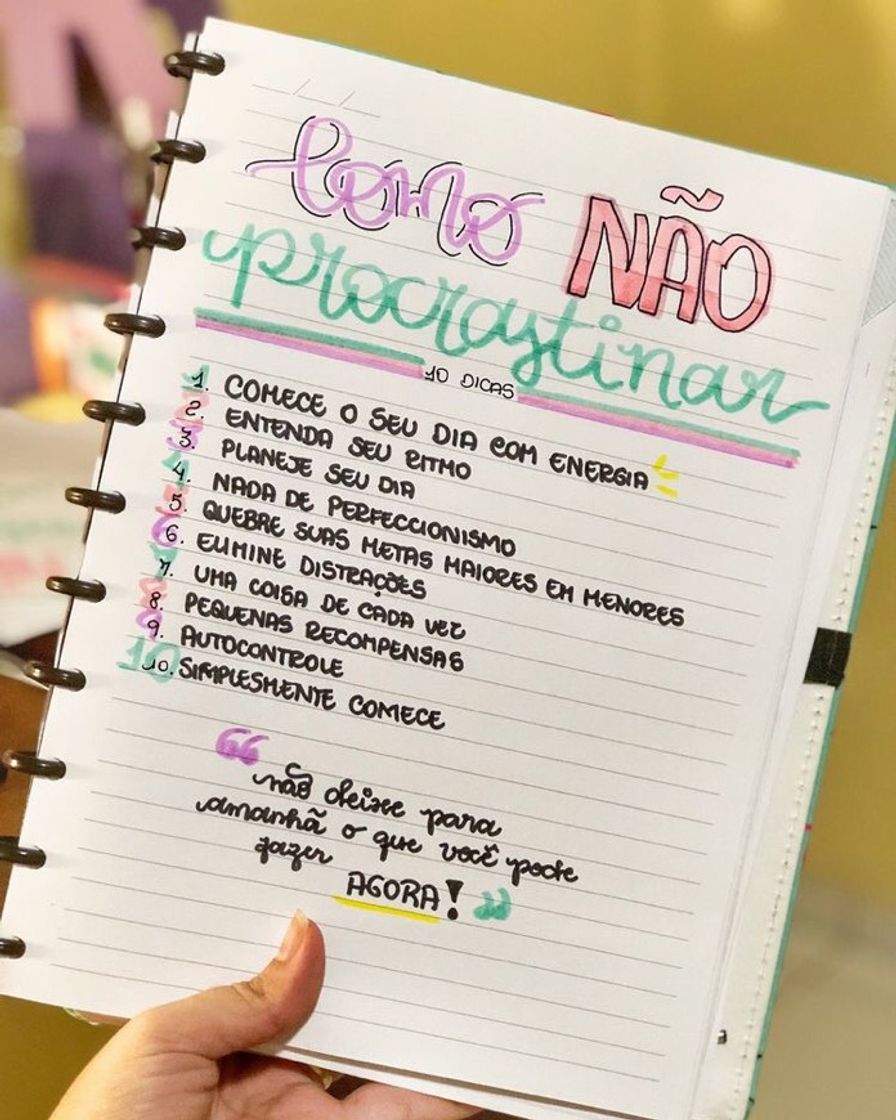 Como NÃO
procrastinar
10 DICAS
1. COMECE O SEU DIA COM ENERGIA
2. ENTENDA SEU RITMO
3. PLANEJE SEU DIA
4. NADA DE PERFECCIONISMO
5. QUEBRE SUAS METAS MAIORES EM MENORES
6. ELIMINE DISTRAÇÕES
7. UMA COISA DE CADA VEZ
8. PEQUENAS RECOMPENSAS
9. AUTOCONTROLE
10. SIMPLESMENTE COMECE
“não deixe para
amanhã o que você pode
fazer
AGORA!”